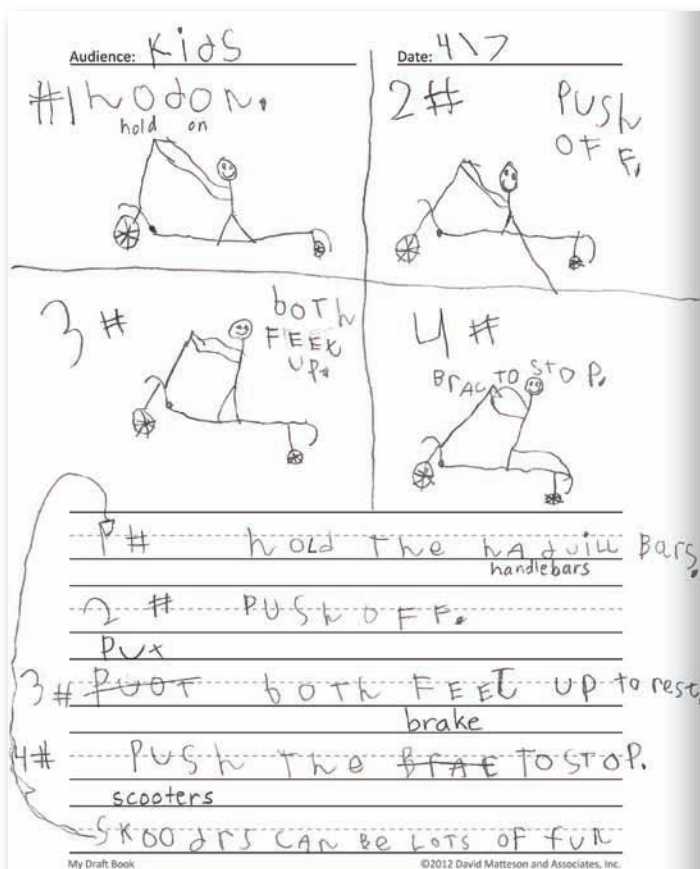 Audience: KidS
Date: 4\7
#1 hodon.
hold on
2# PUSh
OFF.
3# boTh
FEEt
UP.
4#
BrAC TO STOP.
1# hOLd The hAdvill Bars.
handlebars
2# PUShOFF.
Put
3# PUOT boTh FEET UP to rest.
brake
4# PUSh The BrAE TO STOP.
scooters
SKOOdrS CAN Be LOTS OF fUN
My Draft Book
©2012 David Matteson and Associates, Inc.